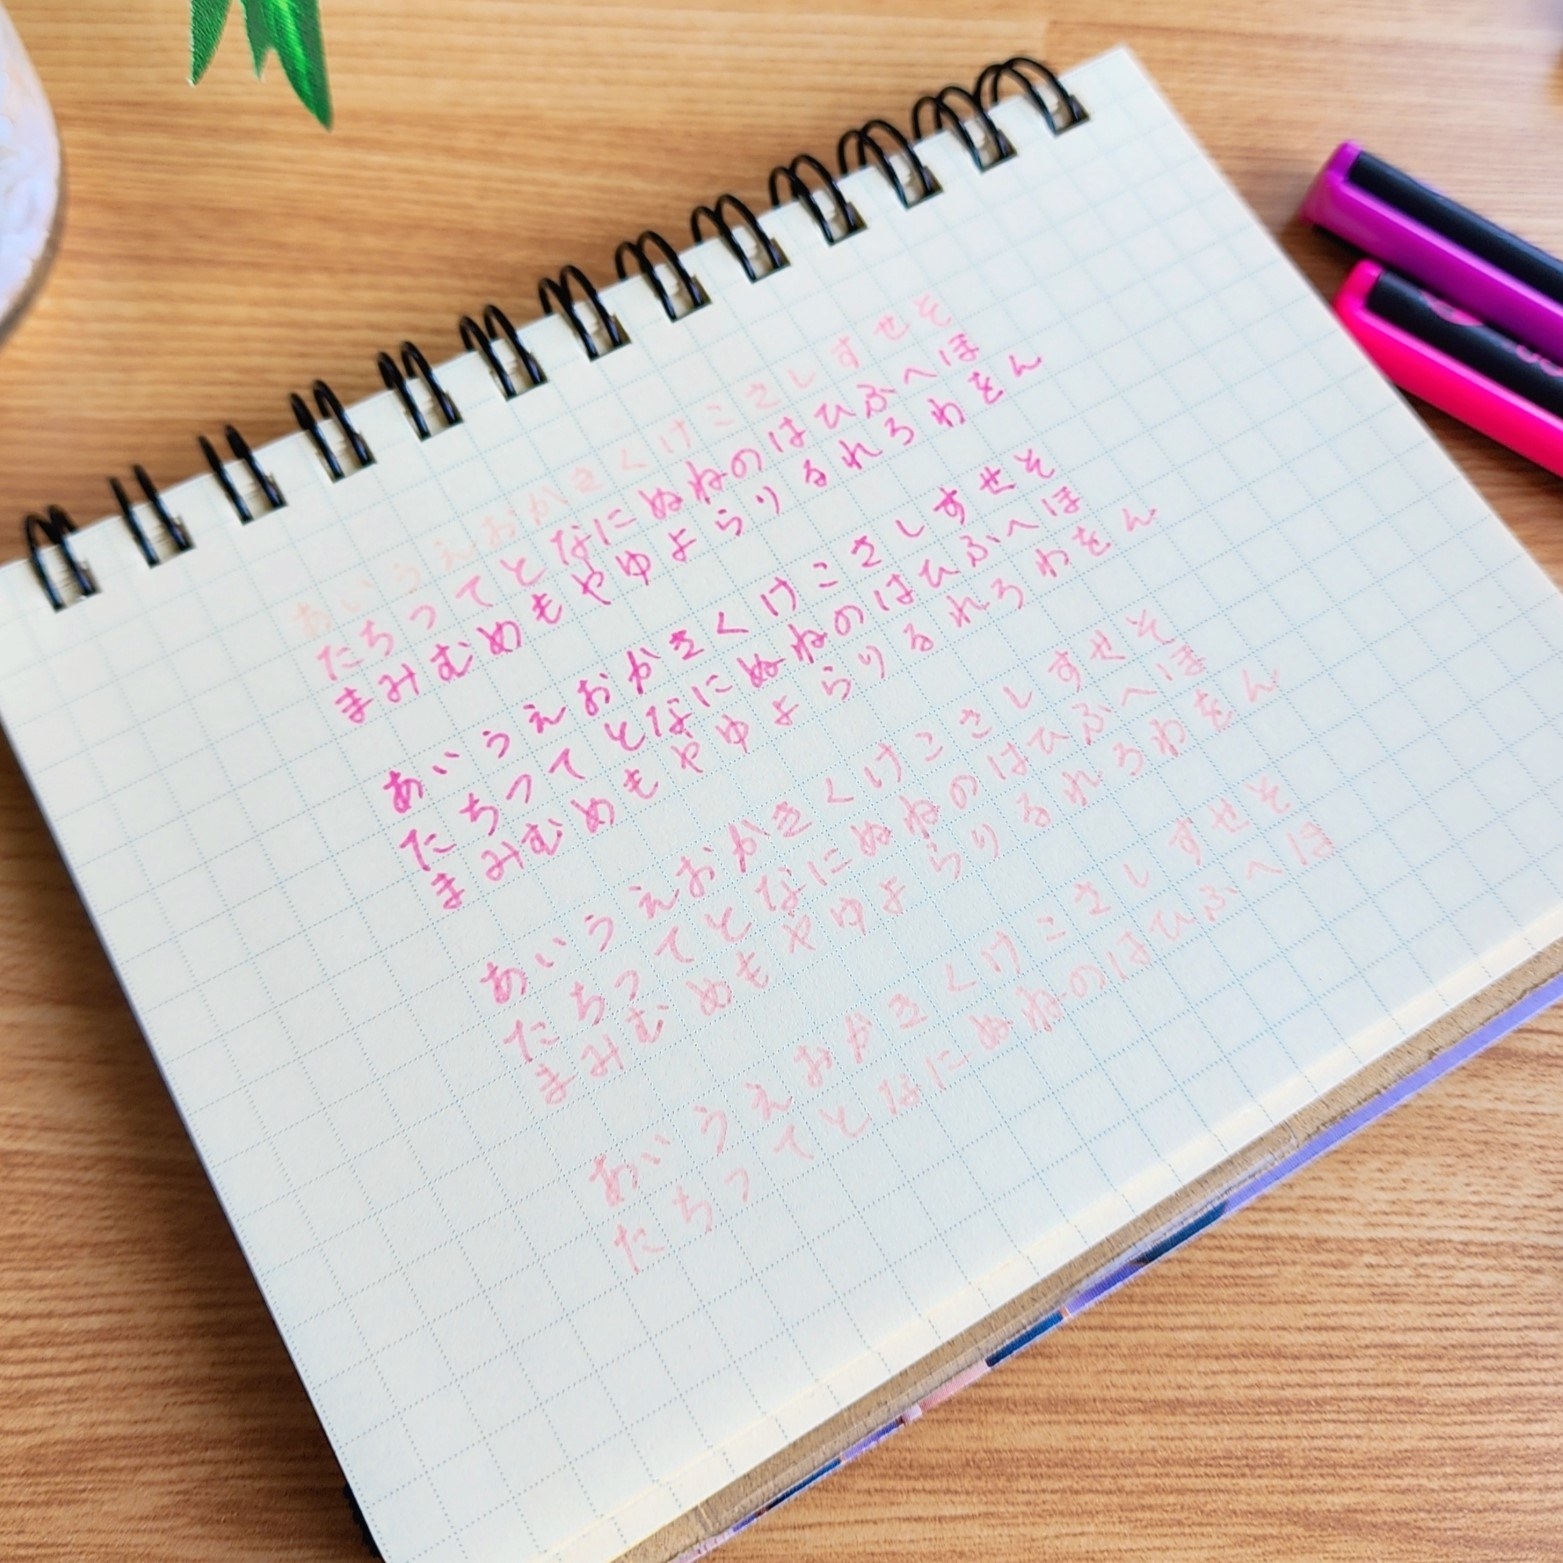 あいうえおかきくけこさしすせそ
たちつてとなにぬねのはひふへほ
まみむめもやゆよらりるれろわをん
あいうえおかきくけこさしすせそ
たちつてとなにぬねのはひふへほ
まみむめもやゆよらりるれろわをん
あいうえおかきくけこさしすせそ
たちつてとなにぬねのはひふへほ
まみむめもやゆよらりるれろわをん
あいうえおかきくけこさしすせそ
たちつてとなにぬねのはひふへほ